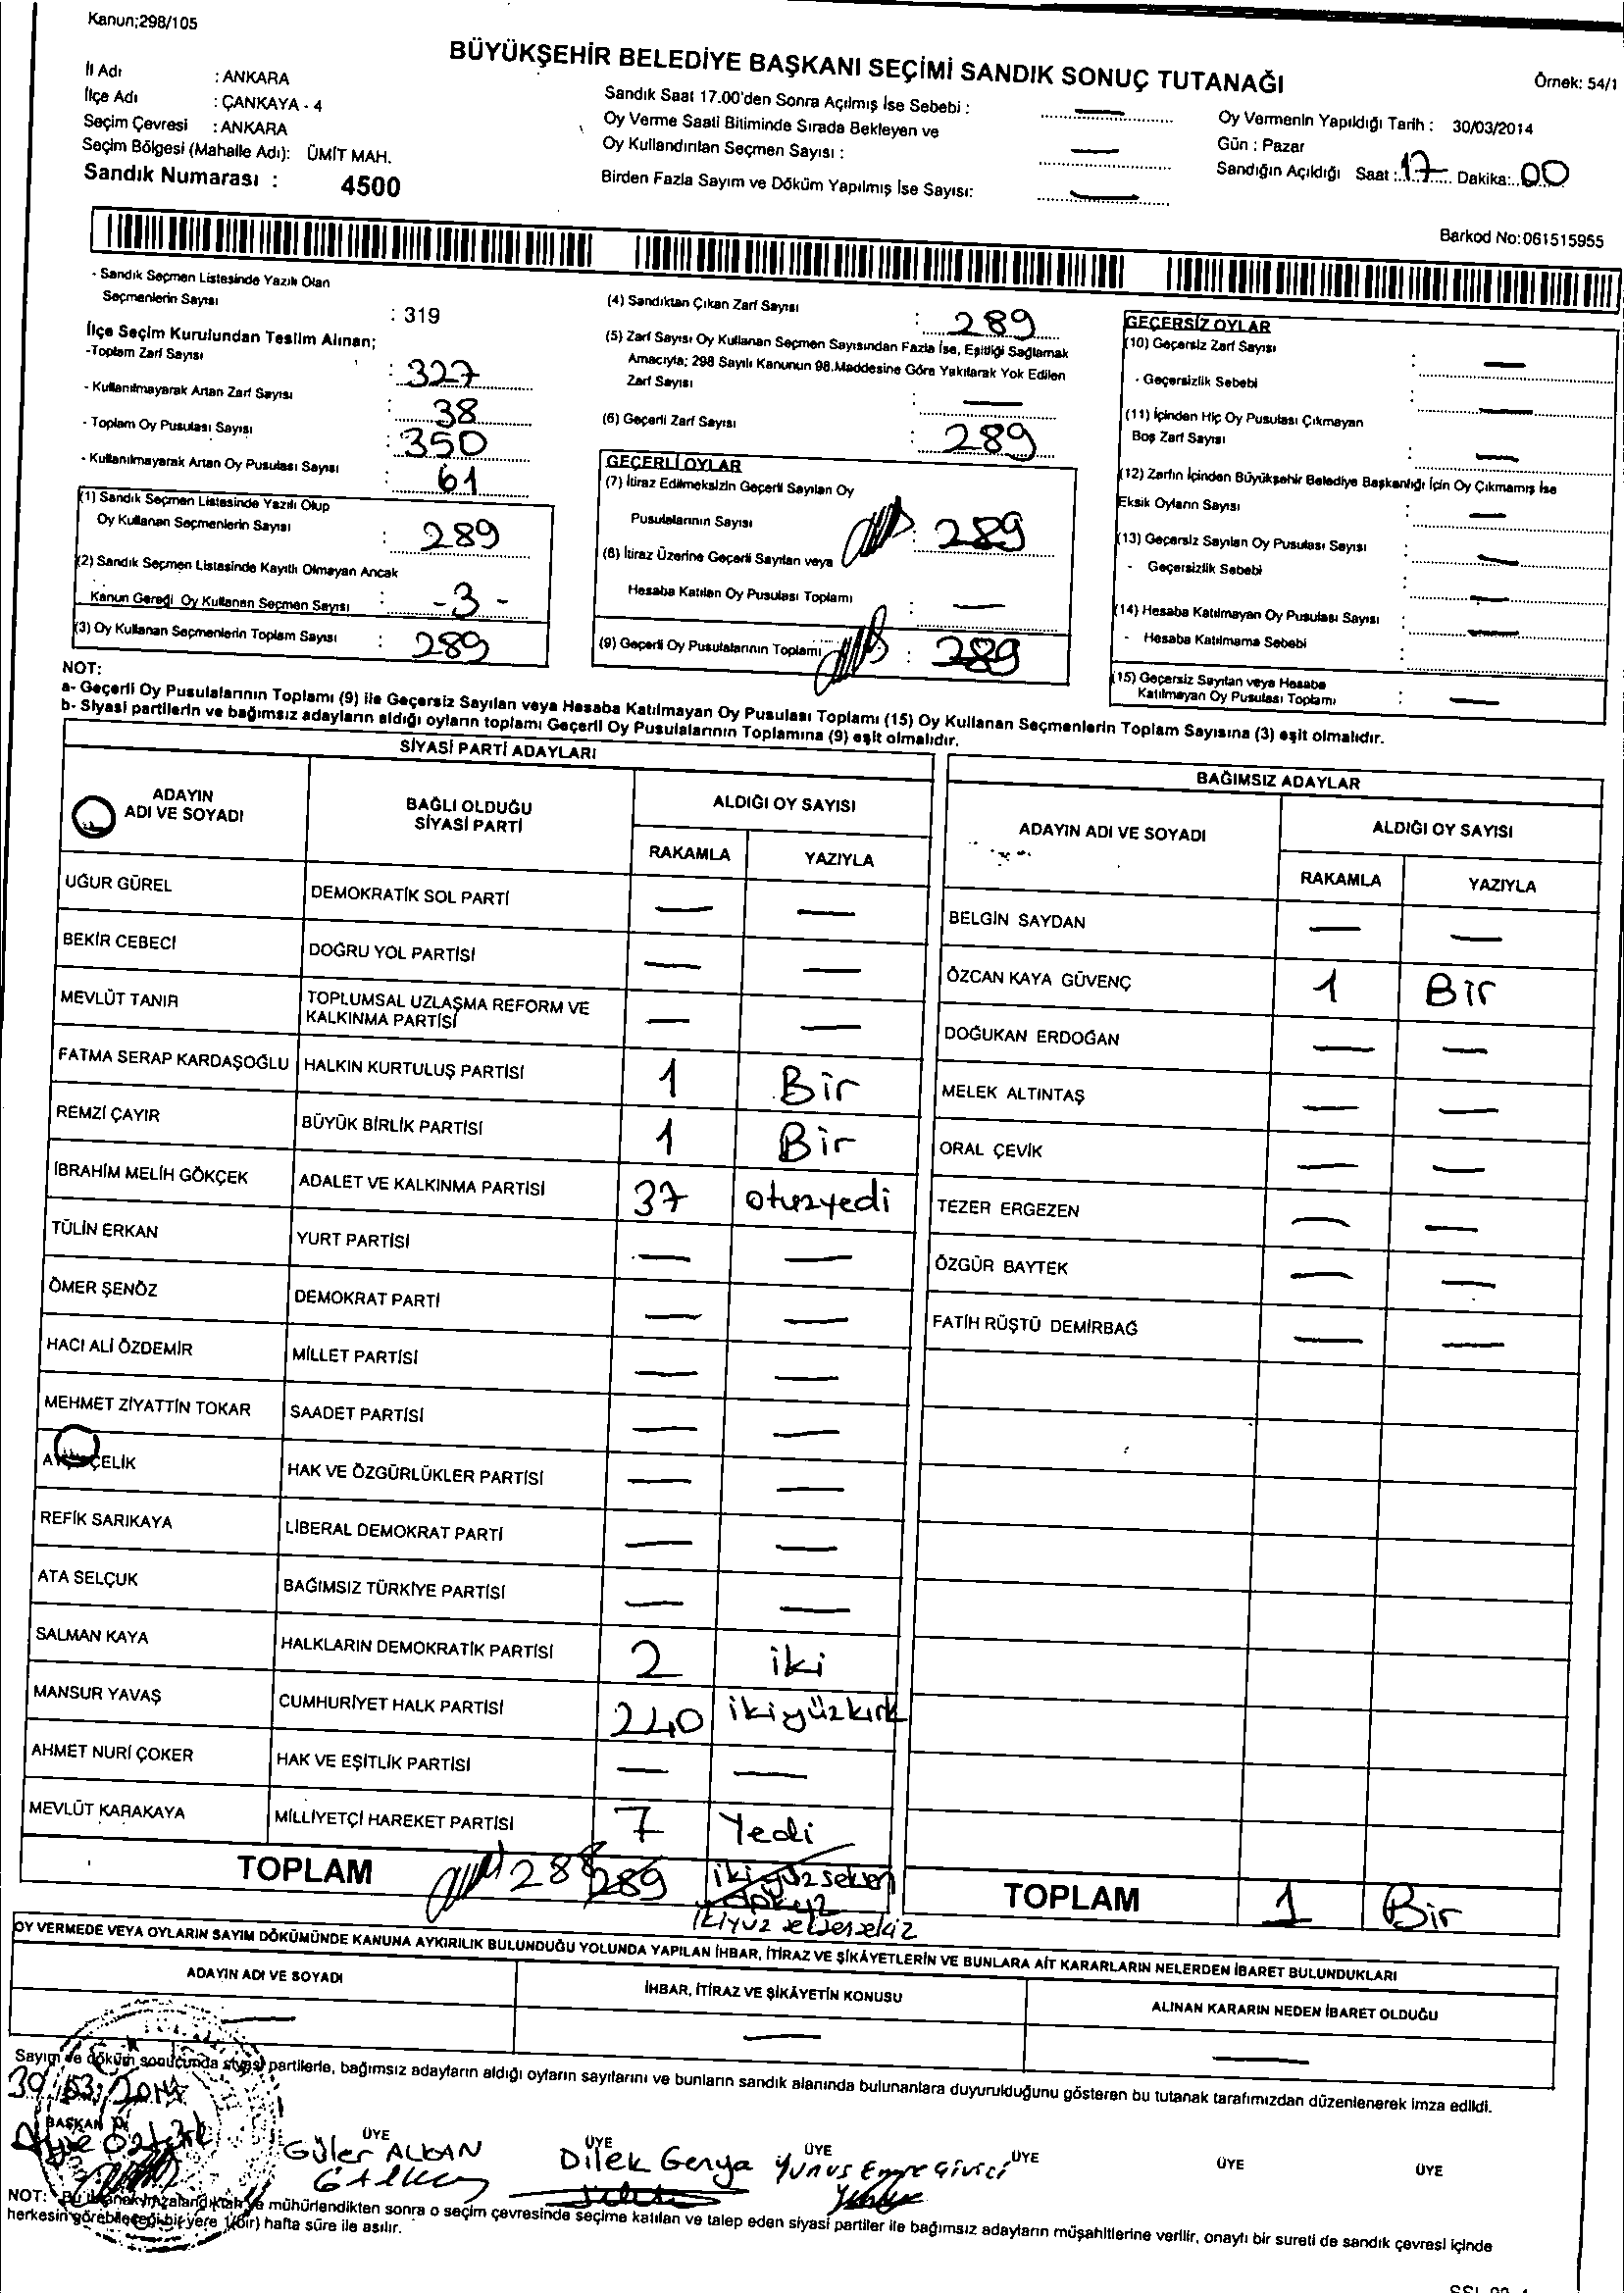 Kanun;298/105
BÜYÜKŞEHİR BELEDİYE BAŞKANI SEÇİMİ SANDIK SONUÇ TUTANAĞI
Örnek: 54/1
İl Adı : ANKARA
İlçe Adı : ÇANKAYA - 4
Seçim Çevresi : ANKARA
Seçim Bölgesi (Mahalle Adı): ÜMİT MAH.
Sandık Numarası : 4500
Sandık Saat 17.00'den Sonra Açılmış İse Sebebi : —
Oy Verme Saati Bitiminde Sırada Bekleyen ve
Oy Kullandırılan Seçmen Sayısı : —
Birden Fazla Sayım ve Döküm Yapılmış İse Sayısı: —
Oy Vermenin Yapıldığı Tarih : 30/03/2014
Gün : Pazar
Sandığın Açıldığı Saat : 17 Dakika: 00
Barkod No:061515955
- Sandık Seçmen Listesinde Yazılı Olan
Seçmenlerin Sayısı : 319
İlçe Seçim Kurulundan Teslim Alınan;
-Toplam Zarf Sayısı : 327
- Kullanılmayarak Artan Zarf Sayısı : 38
- Toplam Oy Pusulası Sayısı : 350
- Kullanılmayarak Artan Oy Pusulası Sayısı : 61
(1) Sandık Seçmen Listesinde Yazılı Olup
Oy Kullanan Seçmenlerin Sayısı : 289
(2) Sandık Seçmen Listesinde Kayıtlı Olmayan Ancak
Kanun Gereği Oy Kullanan Seçmen Sayısı : -3-
(3) Oy Kullanan Seçmenlerin Toplam Sayısı : 289
(4) Sandıktan Çıkan Zarf Sayısı : 289
(5) Zarf Sayısı Oy Kullanan Seçmen Sayısından Fazla İse, Eşitliği Sağlamak
Amacıyla; 298 Sayılı Kanunun 98.Maddesine Göre Yakılarak Yok Edilen
Zarf Sayısı : —
(6) Geçerli Zarf Sayısı : 289
GEÇERLİ OYLAR
(7) İtiraz Edilmeksizin Geçerli Sayılan Oy
Pusulalarının Sayısı : 289
(8) İtiraz Üzerine Geçerli Sayılan veya
Hesaba Katılan Oy Pusulası Toplamı : —
(9) Geçerli Oy Pusulalarının Toplamı : 289
GEÇERSİZ OYLAR
(10) Geçersiz Zarf Sayısı : —
- Geçersizlik Sebebi : —
(11) İçinden Hiç Oy Pusulası Çıkmayan
Boş Zarf Sayısı : —
(12) Zarfın İçinden Büyükşehir Belediye Başkanlığı İçin Oy Çıkmamış İse
Eksik Oyların Sayısı : —
(13) Geçersiz Sayılan Oy Pusulası Sayısı : —
- Geçersizlik Sebebi : —
(14) Hesaba Katılmayan Oy Pusulası Sayısı : —
- Hesaba Katılmama Sebebi :
(15) Geçersiz Sayılan veya Hesaba
Katılmayan Oy Pusulası Toplamı : —
NOT:
a- Geçerli Oy Pusulalarının Toplamı (9) ile Geçersiz Sayılan veya Hesaba Katılmayan Oy Pusulası Toplamı (15) Oy Kullanan Seçmenlerin Toplam Sayısına (3) eşit olmalıdır.
b- Siyasi partilerin ve bağımsız adayların aldığı oyların toplamı Geçerli Oy Pusulalarının Toplamına (9) eşit olmalıdır.
SİYASİ PARTİ ADAYLARI
ADAYIN ADI VE SOYADI
BAĞLI OLDUĞU SİYASİ PARTİ
ALDIĞI OY SAYISI
RAKAMLA YAZIYLA
UĞUR GÜREL DEMOKRATİK SOL PARTİ — —
BEKİR CEBECİ DOĞRU YOL PARTİSİ — —
MEVLÜT TANIR TOPLUMSAL UZLAŞMA REFORM VE KALKINMA PARTİSİ — —
FATMA SERAP KARDAŞOĞLU HALKIN KURTULUŞ PARTİSİ 1 Bir
REMZİ ÇAYIR BÜYÜK BİRLİK PARTİSİ 1 Bir
İBRAHİM MELİH GÖKÇEK ADALET VE KALKINMA PARTİSİ 37 otuzyedi
TÜLİN ERKAN YURT PARTİSİ — —
ÖMER ŞENÖZ DEMOKRAT PARTİ — —
HACI ALİ ÖZDEMİR MİLLET PARTİSİ — —
MEHMET ZİYATTİN TOKAR SAADET PARTİSİ — —
ÇELİK HAK VE ÖZGÜRLÜKLER PARTİSİ — —
REFİK SARIKAYA LİBERAL DEMOKRAT PARTİ — —
ATA SELÇUK BAĞIMSIZ TÜRKİYE PARTİSİ — —
SALMAN KAYA HALKLARIN DEMOKRATİK PARTİSİ 2 iki
MANSUR YAVAŞ CUMHURİYET HALK PARTİSİ 240 ikiyüzkırk
AHMET NURİ ÇOKER HAK VE EŞİTLİK PARTİSİ — —
MEVLÜT KARAKAYA MİLLİYETÇİ HAREKET PARTİSİ 7 Yedi
TOPLAM 288 289 ikiyüzseksen
ikiyüz seksensekiz
BAĞIMSIZ ADAYLAR
ADAYIN ADI VE SOYADI
ALDIĞI OY SAYISI
RAKAMLA YAZIYLA
BELGİN SAYDAN — —
ÖZCAN KAYA GÜVENÇ 1 Bir
DOĞUKAN ERDOĞAN — —
MELEK ALTINTAŞ — —
ORAL ÇEVİK — —
TEZER ERGEZEN — —
ÖZGÜR BAYTEK — —
FATİH RÜŞTÜ DEMİRBAĞ — —
TOPLAM 1 Bir
OY VERMEDE VEYA OYLARIN SAYIM DÖKÜMÜNDE KANUNA AYKIRILIK BULUNDUĞU YOLUNDA YAPILAN İHBAR, İTİRAZ VE ŞİKÂYETLERİN VE BUNLARA AİT KARARLARIN NELERDEN İBARET BULUNDUKLARI
ADAYIN ADI VE SOYADI
İHBAR, İTİRAZ VE ŞİKÂYETİN KONUSU
ALINAN KARARIN NEDEN İBARET OLDUĞU
— — —
Sayım ve döküm sonucunda siyasi partilerle, bağımsız adayların aldığı oyların sayılarını ve bunların sandık alanında bulunanlara duyurulduğunu gösteren bu tutanak tarafımızdan düzenlenerek imza edildi.
30/03/2014
BAŞKAN ÜYE ÜYE ÜYE ÜYE ÜYE ÜYE
Ayşe Öztürk Güler ALKAN Dilek Genya Yunus Emre Givici
NOT: Bu tutanak imzalandıktan ve mühürlendikten sonra o seçim çevresinde seçime katılan ve talep eden siyasi partiler ile bağımsız adayların müşahitlerine verilir, onaylı bir sureti de sandık çevresi içinde
herkesin görebileceği bir yere 1(bir) hafta süre ile asılır.